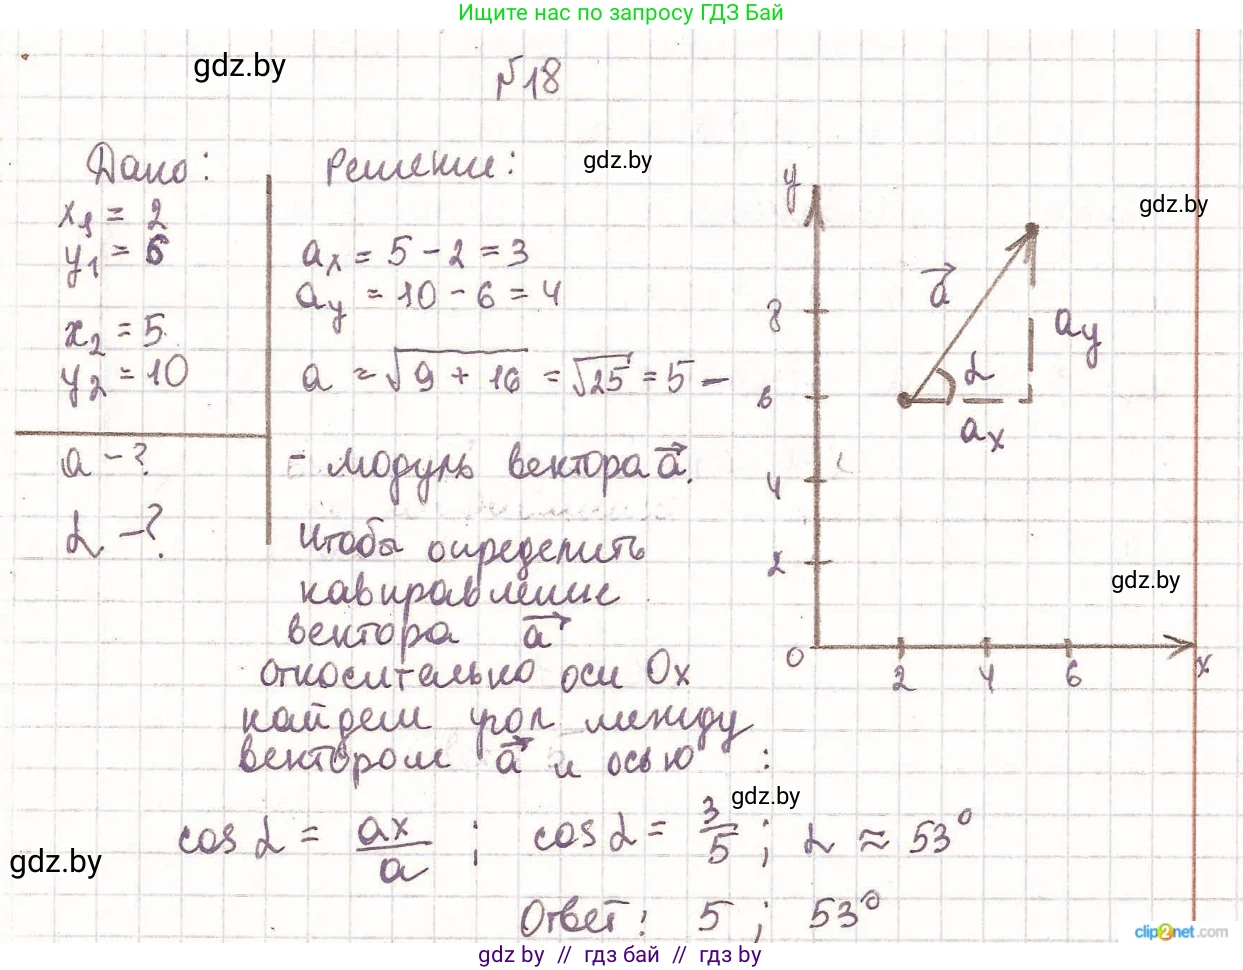 Ищите нас по запросу ГДЗ Бай
gdz.by
№18
Дано:
x₁ = 2
y₁ = 6
x₂ = 5
y₂ = 10
a - ?
α - ?
Решение:
gdz.by
aₓ = 5 - 2 = 3
a_y = 10 - 6 = 4
a = √9 + 16 = √25 = 5 -
- модуль вектора a⃗.
Чтобы определить
направление
вектора a⃗
относительно оси Ox
найдем угол между
вектором a⃗ и осью :
y
gdz.by
a⃗
8
a_y
α
6
aₓ
4
2
gdz.by
0
2
4
6
x
gdz.by
cos α = aₓ/a ; cos α = 3/5 ; α ≈ 53°
gdz.by
Ответ: 5 ; 53°
clip2net.com
gdz.by // гдз бай // гдз by